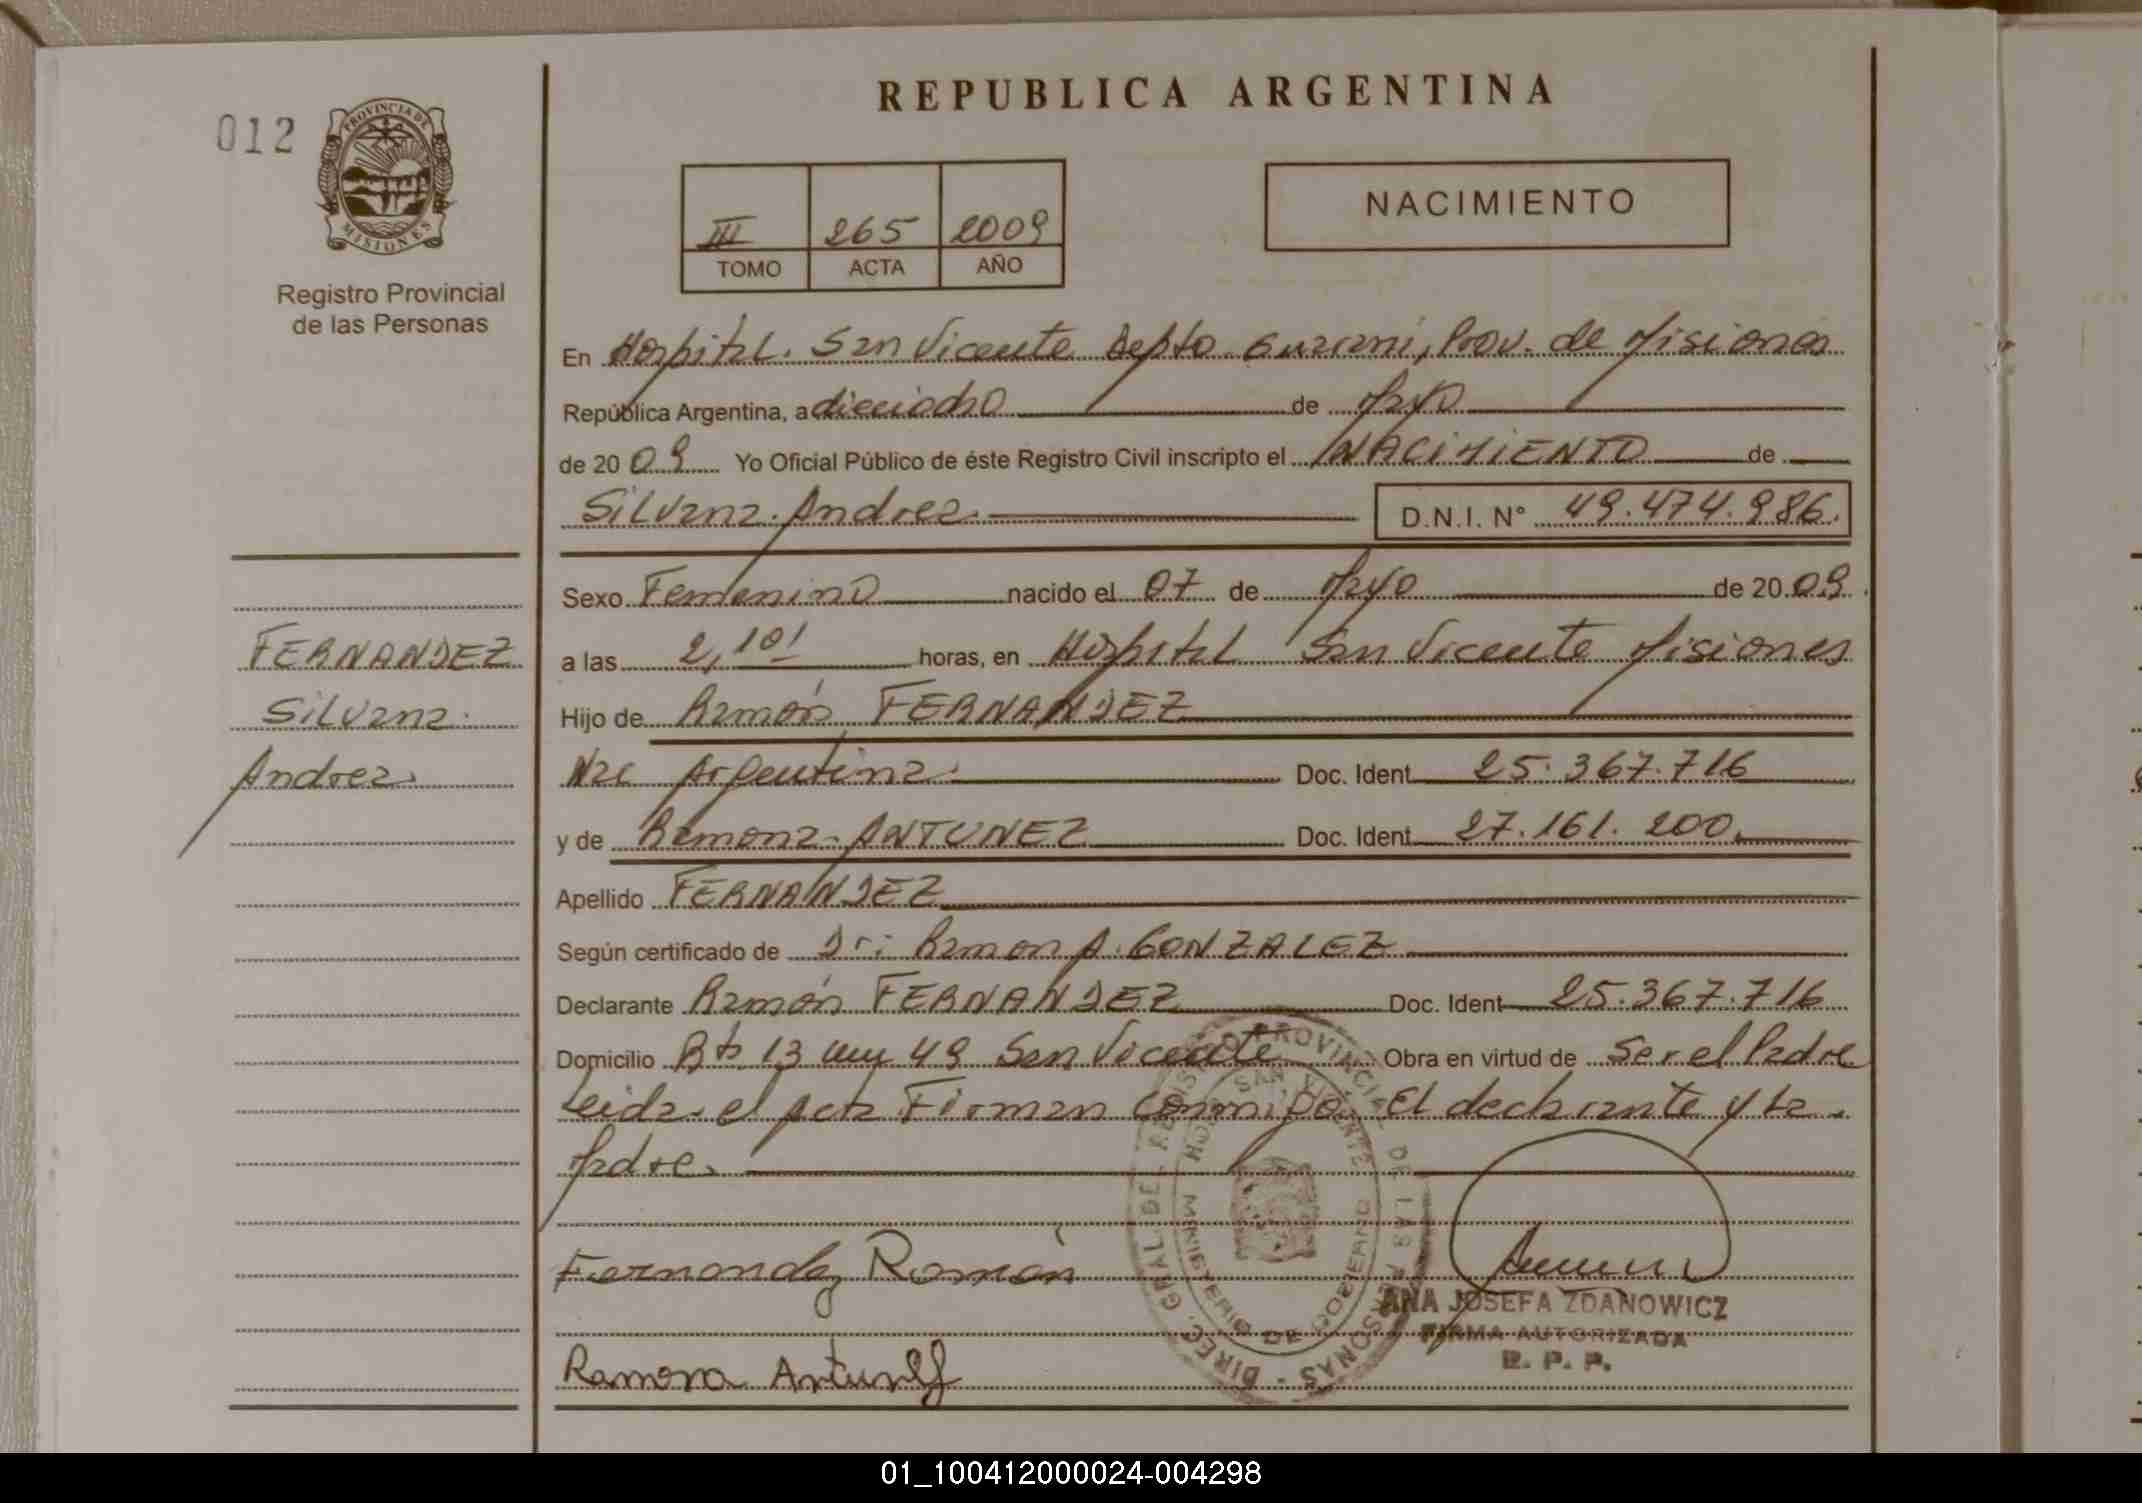 012
PROVINCIA DE
MISIONES
Registro Provincial
de las Personas
FERNANDEZ
Silvana
Andrea
REPUBLICA ARGENTINA
III 265 2009
TOMO ACTA AÑO
NACIMIENTO
En Hospital. San Vicente Depto. Guarani, Prov. de Misiones
República Argentina, a dieciocho de Mayo
de 20 09 Yo Oficial Público de éste Registro Civil inscripto el NACIMIENTO de
Silvana Andrea D.N.I. N° 49.474.986.
Sexo Femenino nacido el 07 de Mayo de 20 09
a las 2,10' horas, en Hospital San Vicente Misiones
Hijo de Ramón FERNANDEZ
Nac Argentina Doc. Ident 25.367.716
y de Ramona ANTUNEZ Doc. Ident 27.161.200.
Apellido FERNANDEZ
Según certificado de Dr: Ramon A. GONZALEZ
Declarante Ramón FERNANDEZ Doc. Ident 25.367.716
Domicilio 13 49 San Vicente Obra en virtud de Ser el Padre
Leida el acta Firman Conmigo El declarante y la
Madre.
Fernandez Ramón
Ramona Antunez
DIREC. GRAL DEL REGISTRO PROVINCIAL DE LAS PERSONAS
HOSP. SAN VICENTE
MINISTERIO DE GOBIERNO
ANA JOSEFA ZDANOWICZ
FIRMA AUTORIZADA
R. P. P.
01_100412000024-004298